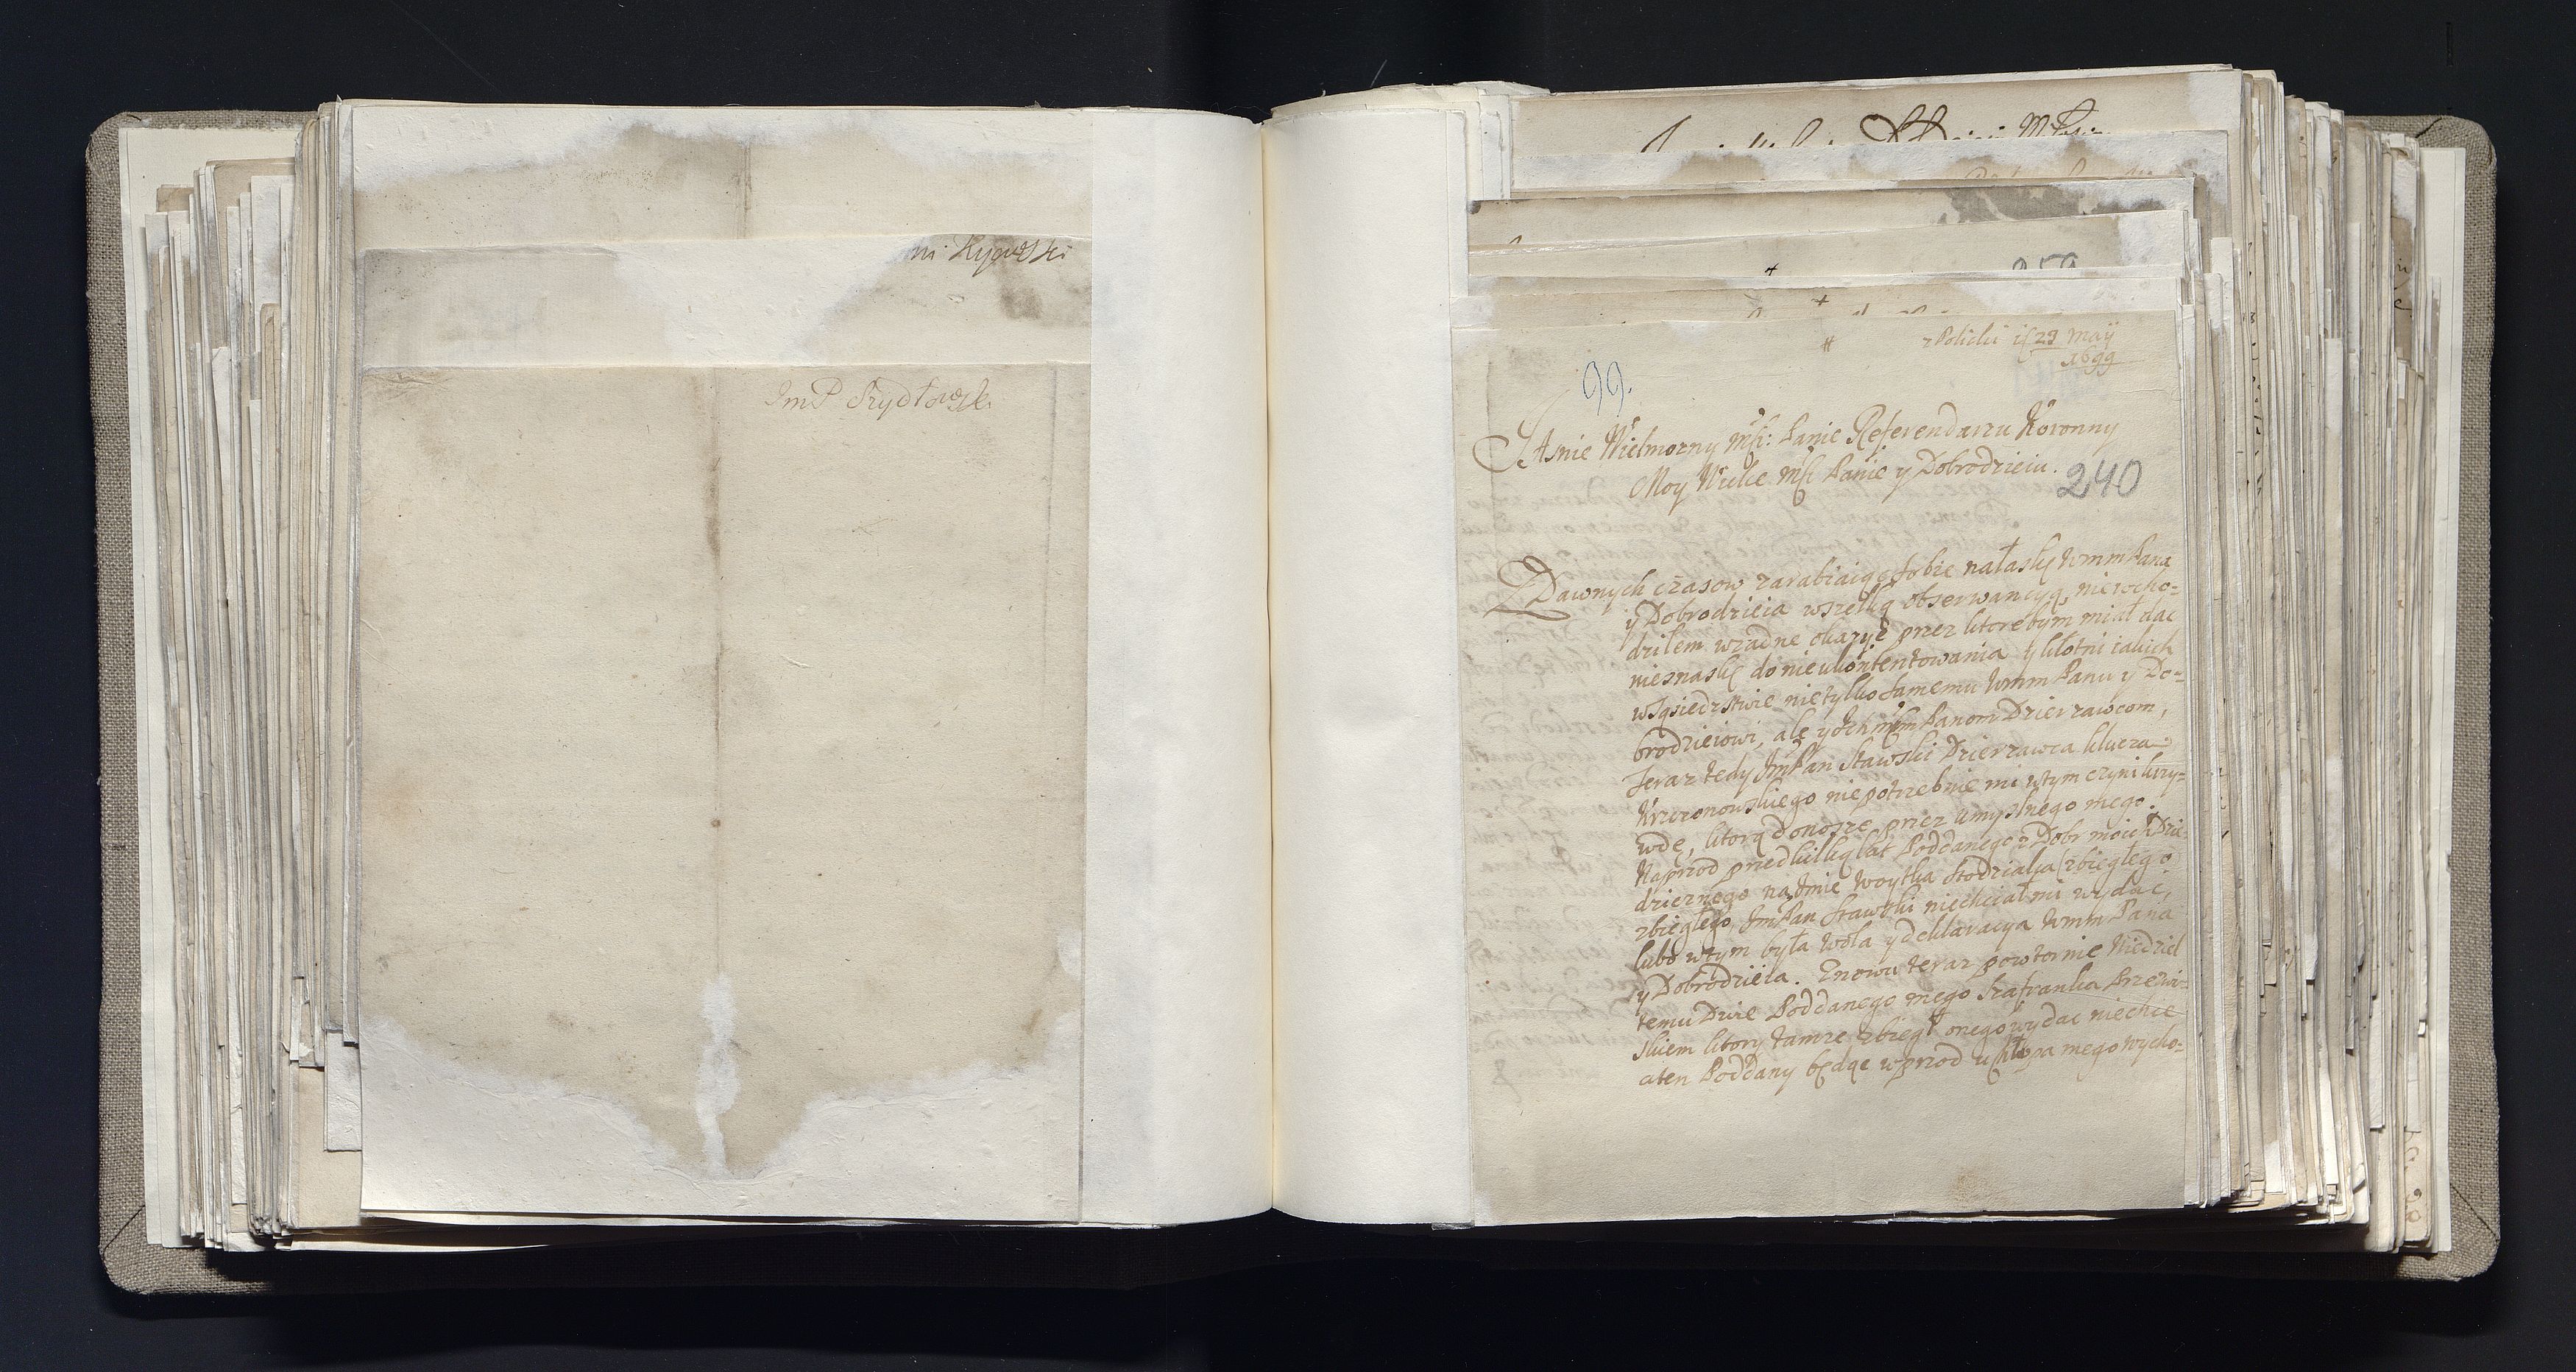 ni Kyowski
ImP Szydłowsk.
z Policki
23 Maij
1699
99.
JAsnie Wielmozny Msci: Panie Referendarzu Koronny
Moy Wielce Msci Panie y Dobrodzieiu.
240
ZDawnych czasow zarabiaiąc sobie nałaskę WmmPana
y Dobrodzieia wszelką obserwancyą, niewcho=
dziłem wzadne okazye przez ktorebym miał dac
niesnaskę do nieukontentowania y kłotni iakich
wsąsiedztwie nietylko samemu Wmm Panu y Do=
brodzieiowi, ale y Panom Dzierzawcom,
Teraz tedy ImPan Stawski Dzierzawca klucza
Krzczonowskiego niepotrzebnie mi wtym czyni krzy=
wdę, ktorą donoszę przez umyslnego mego.
Naprzod przed kilką lat Poddanego z Dobr moich Dzie=
dzicznego na Imie Woytka zbiegłego
zbiegłego, ImPan Stawski niechciał mi wydac,
lubo wtym była wola y deklaracya Wmm Pana
y Dobrodzieia. Znowu teraz powtornie Niedziel
temu Dwie Poddanego mego Szafranka
skiem ktory tamze zbiegł onego wydac niechce
aten Poddany będąc wprzod u chłopa mego wycho=